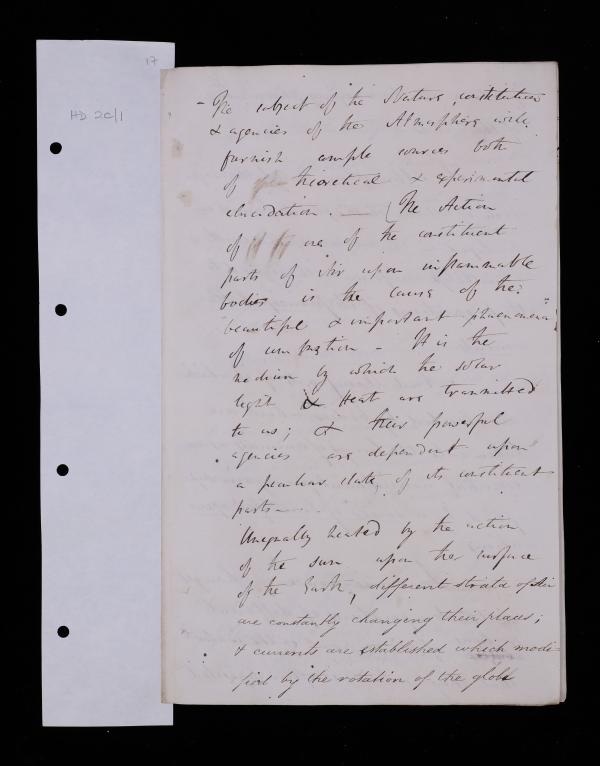 17
HD 2c/1
- The subject of the Nature, constitution
& agencies of the Atmosphere will
furnish ample sources both
of theoretical & experimental
elucidation. — (The Action
of one of the constituent
parts of Air upon inflammable
bodies is the cause of the
beautiful & important phaenomena
of combustion - It is the
medium by which the solar
light & Heat are transmitted
to us; & their powerful
agencies are dependent upon
a peculiar state, of its constituent
parts —
Unequally heated by the action
of the sun upon the surface
of the Earth, different strata of Air
are constantly changing their places;
& currents are established which modi-
fied by the rotation of the globe